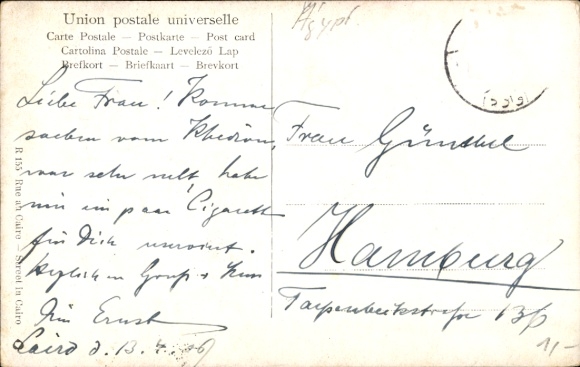 Union postale universelle
Carte Postale — Postkarte — Post card
Cartolina Postale — Levelező Lap
Brefkort — Briefkaart — Brevkort
Ägypt.
Liebe Frau! Komme
soeben vom Khediven,
war sehr nett, habe
mir ein paar Cigarett
für Dich reserviert.
Herzlichen Gruß + Kuss
Dein Ernst
Cairo d. 13. 4.
R 155 Rue au Caire — Street in Cairo
Frau Günthel
Hamburg
Tarpenbekstrasse